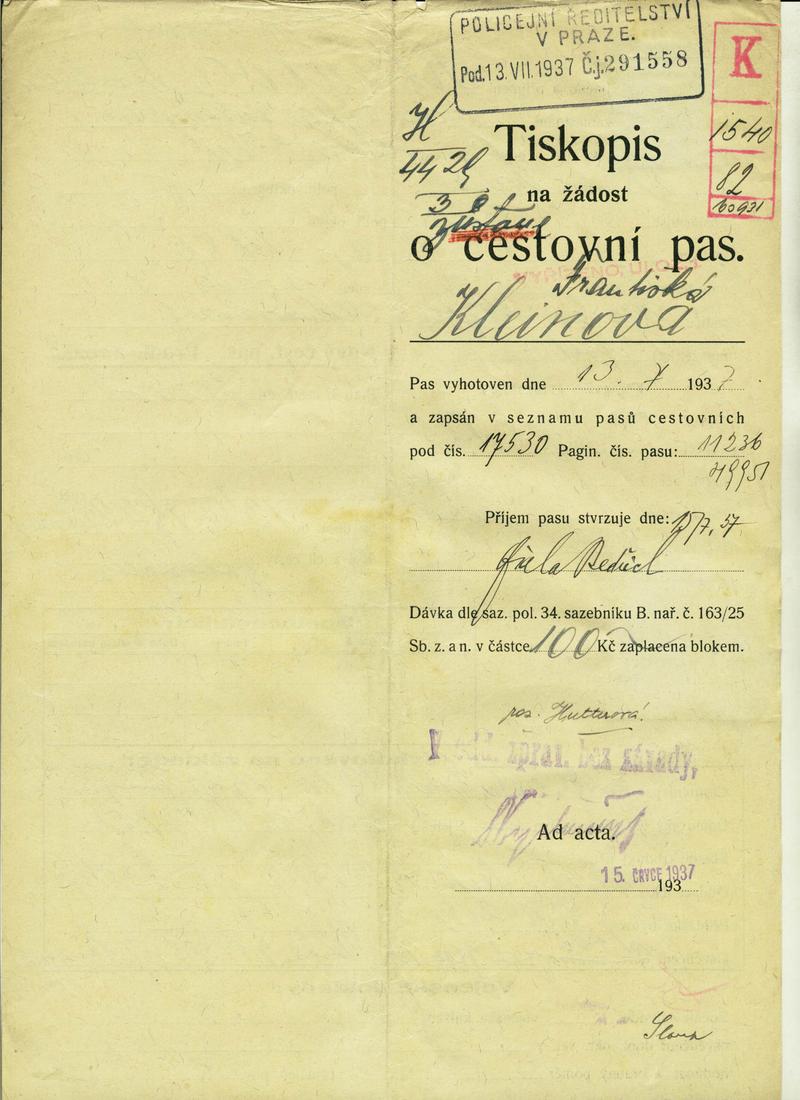 POLICEJNÍ ŘEDITELSTVÍ
V PRAZE.
Pod.13.VII.1937 Č.j.291558
K
1540
82
60931
H
44 29
3
zůstane
Tiskopis
na žádost
o cestovní pas.
Františka
Kleinová
Pas vyhotoven dne 13. X 1937
a zapsán v seznamu pasů cestovních
pod čís. 17530 Pagin. čís. pasu: 11236
49951
Příjem pasu stvrzuje dne: 15/7. 37
Dávka dle saz. pol. 34. sazebníku B. nař. č. 163/25
Sb. z. a n. v částce 100 Kč zaplacena blokem.
roz. Hutterová.
bez závady,
Ad acta.
15. ČRVCE 1937
193